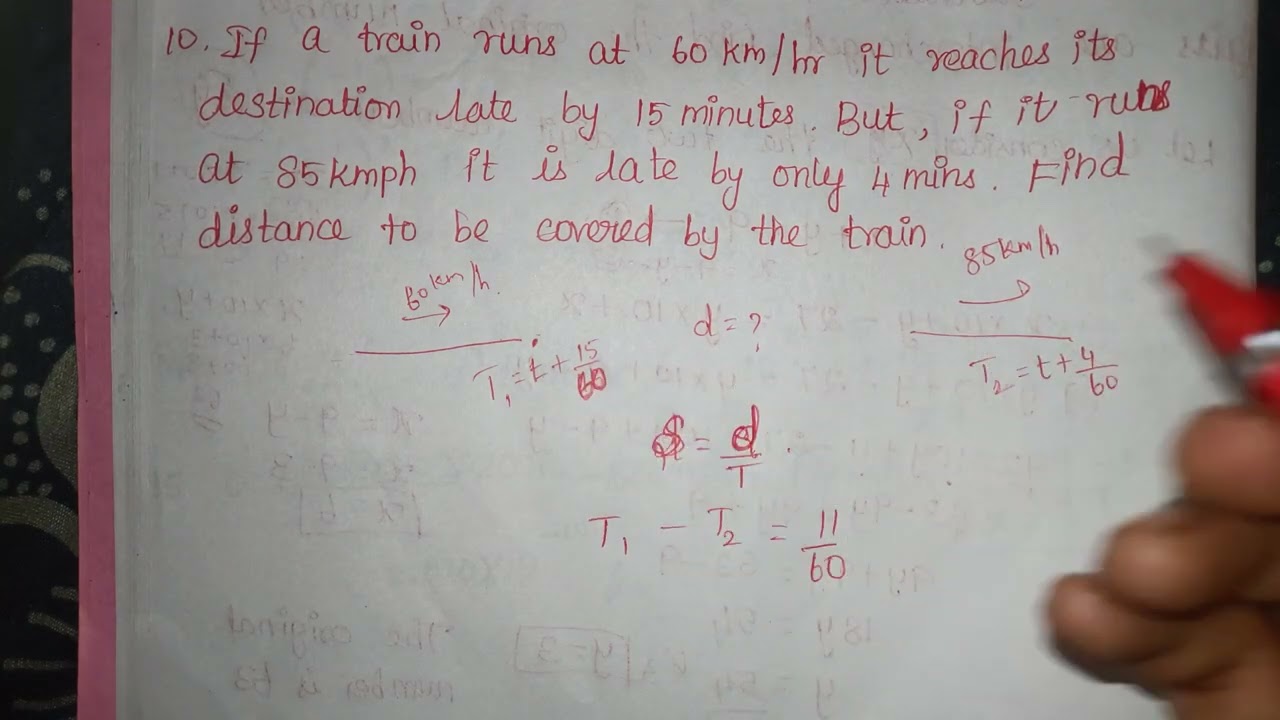 10. If a train runs at 60 km/hr it reaches its
destination late by 15 minutes. But, if it runs
at 85 kmph it is late by only 4 mins. Find
distance to be covered by the train.
60 km/h
85 km/h
d = ?
T₁ = t + 15/60
T₂ = t + 4/60
S = d/T
T₁ - T₂ = 11/60